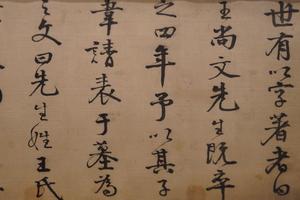 世有以字著者曰
王尚文先生既卒
之四年予以其子
韋請表于墓為
之文曰先生姓王氏